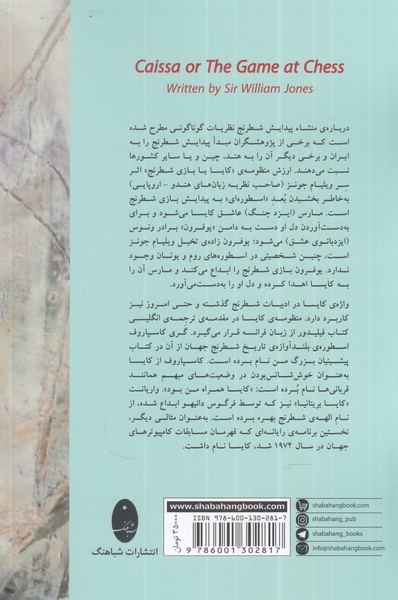 Caissa or The Game at Chess
Written by Sir William Jones
درباره‌ی منشاء پیدایش شطرنج نظریات گوناگونی مطرح شده
است که برخی از پژوهشگران مبدأ پیدایش شطرنج را به
ایران و برخی دیگر آن را به هند، چین و یا سایر کشورها
نسبت می‌دهند. ارزش منظومه‌ی «کایسا یا بازی شطرنج» اثر
سر ویلیام جونز (صاحب نظریه زبان‌های هندو - اروپایی)
به‌خاطر بخشیدن بُعدِ «اسطوره‌ای» به پیدایش بازی شطرنج
است. مارس (ایزد جنگ) عاشق کایسا می‌شود و برای
به‌دست‌آوردن دل او دست به دامن «یوفرون» برادر ونوس
(ایزدبانوی عشق) می‌شود؛ یوفرون زاده‌ی تخیل ویلیام جونز
است، چنین شخصیتی در اسطوره‌های روم و یونان وجود
ندارد. یوفرون بازی شطرنج را ابداع می‌کند و مارس آن را
به کایسا اهدا کرده و دل او را به‌دست‌می‌آورد.
واژه‌ی کایسا در ادبیات شطرنج گذشته و حتی امروز نیز
کاربرد دارد. منظومه‌ی کایسا در مقدمه‌ی ترجمه‌ی انگلیسی
کتاب فیلیدور از زبان فرانسه قرار می‌گیرد. گری کاسپاروف
اسطوره‌ی بلندآوازه‌ی تاریخ شطرنج جهان از آن در کتاب
پیشینیان بزرگ من نام برده است. کاسپاروف از کایسا
به‌عنوان خوش‌شانس‌بودن در وضعیت‌های مبهم همانند
قربانی‌ها نام بُرده است: «کایسا همراه من بود». واریانت
«کایسا بریتانیا» نیز که توسط فرگوس دانیهو ابداع شده، از
نام الهه‌ی شطرنج بهره برده است. به‌عنوان مثالی دیگر،
نخستین برنامه‌ی رایانه‌ای که قهرمان مسابقات کامپیوترهای
جهان در سال ۱۹۷۴ شد، کایسا نام داشت.
شباهنگ
انتشارات شباهنگ
۳۵۰۰۰ تومان
ISBN 978-600-130-281-7
9 786001 302817
www.shabahangbook.com
shabahangbook.com
shabahang_pub
shabahang_books
info@shabahangbook.com